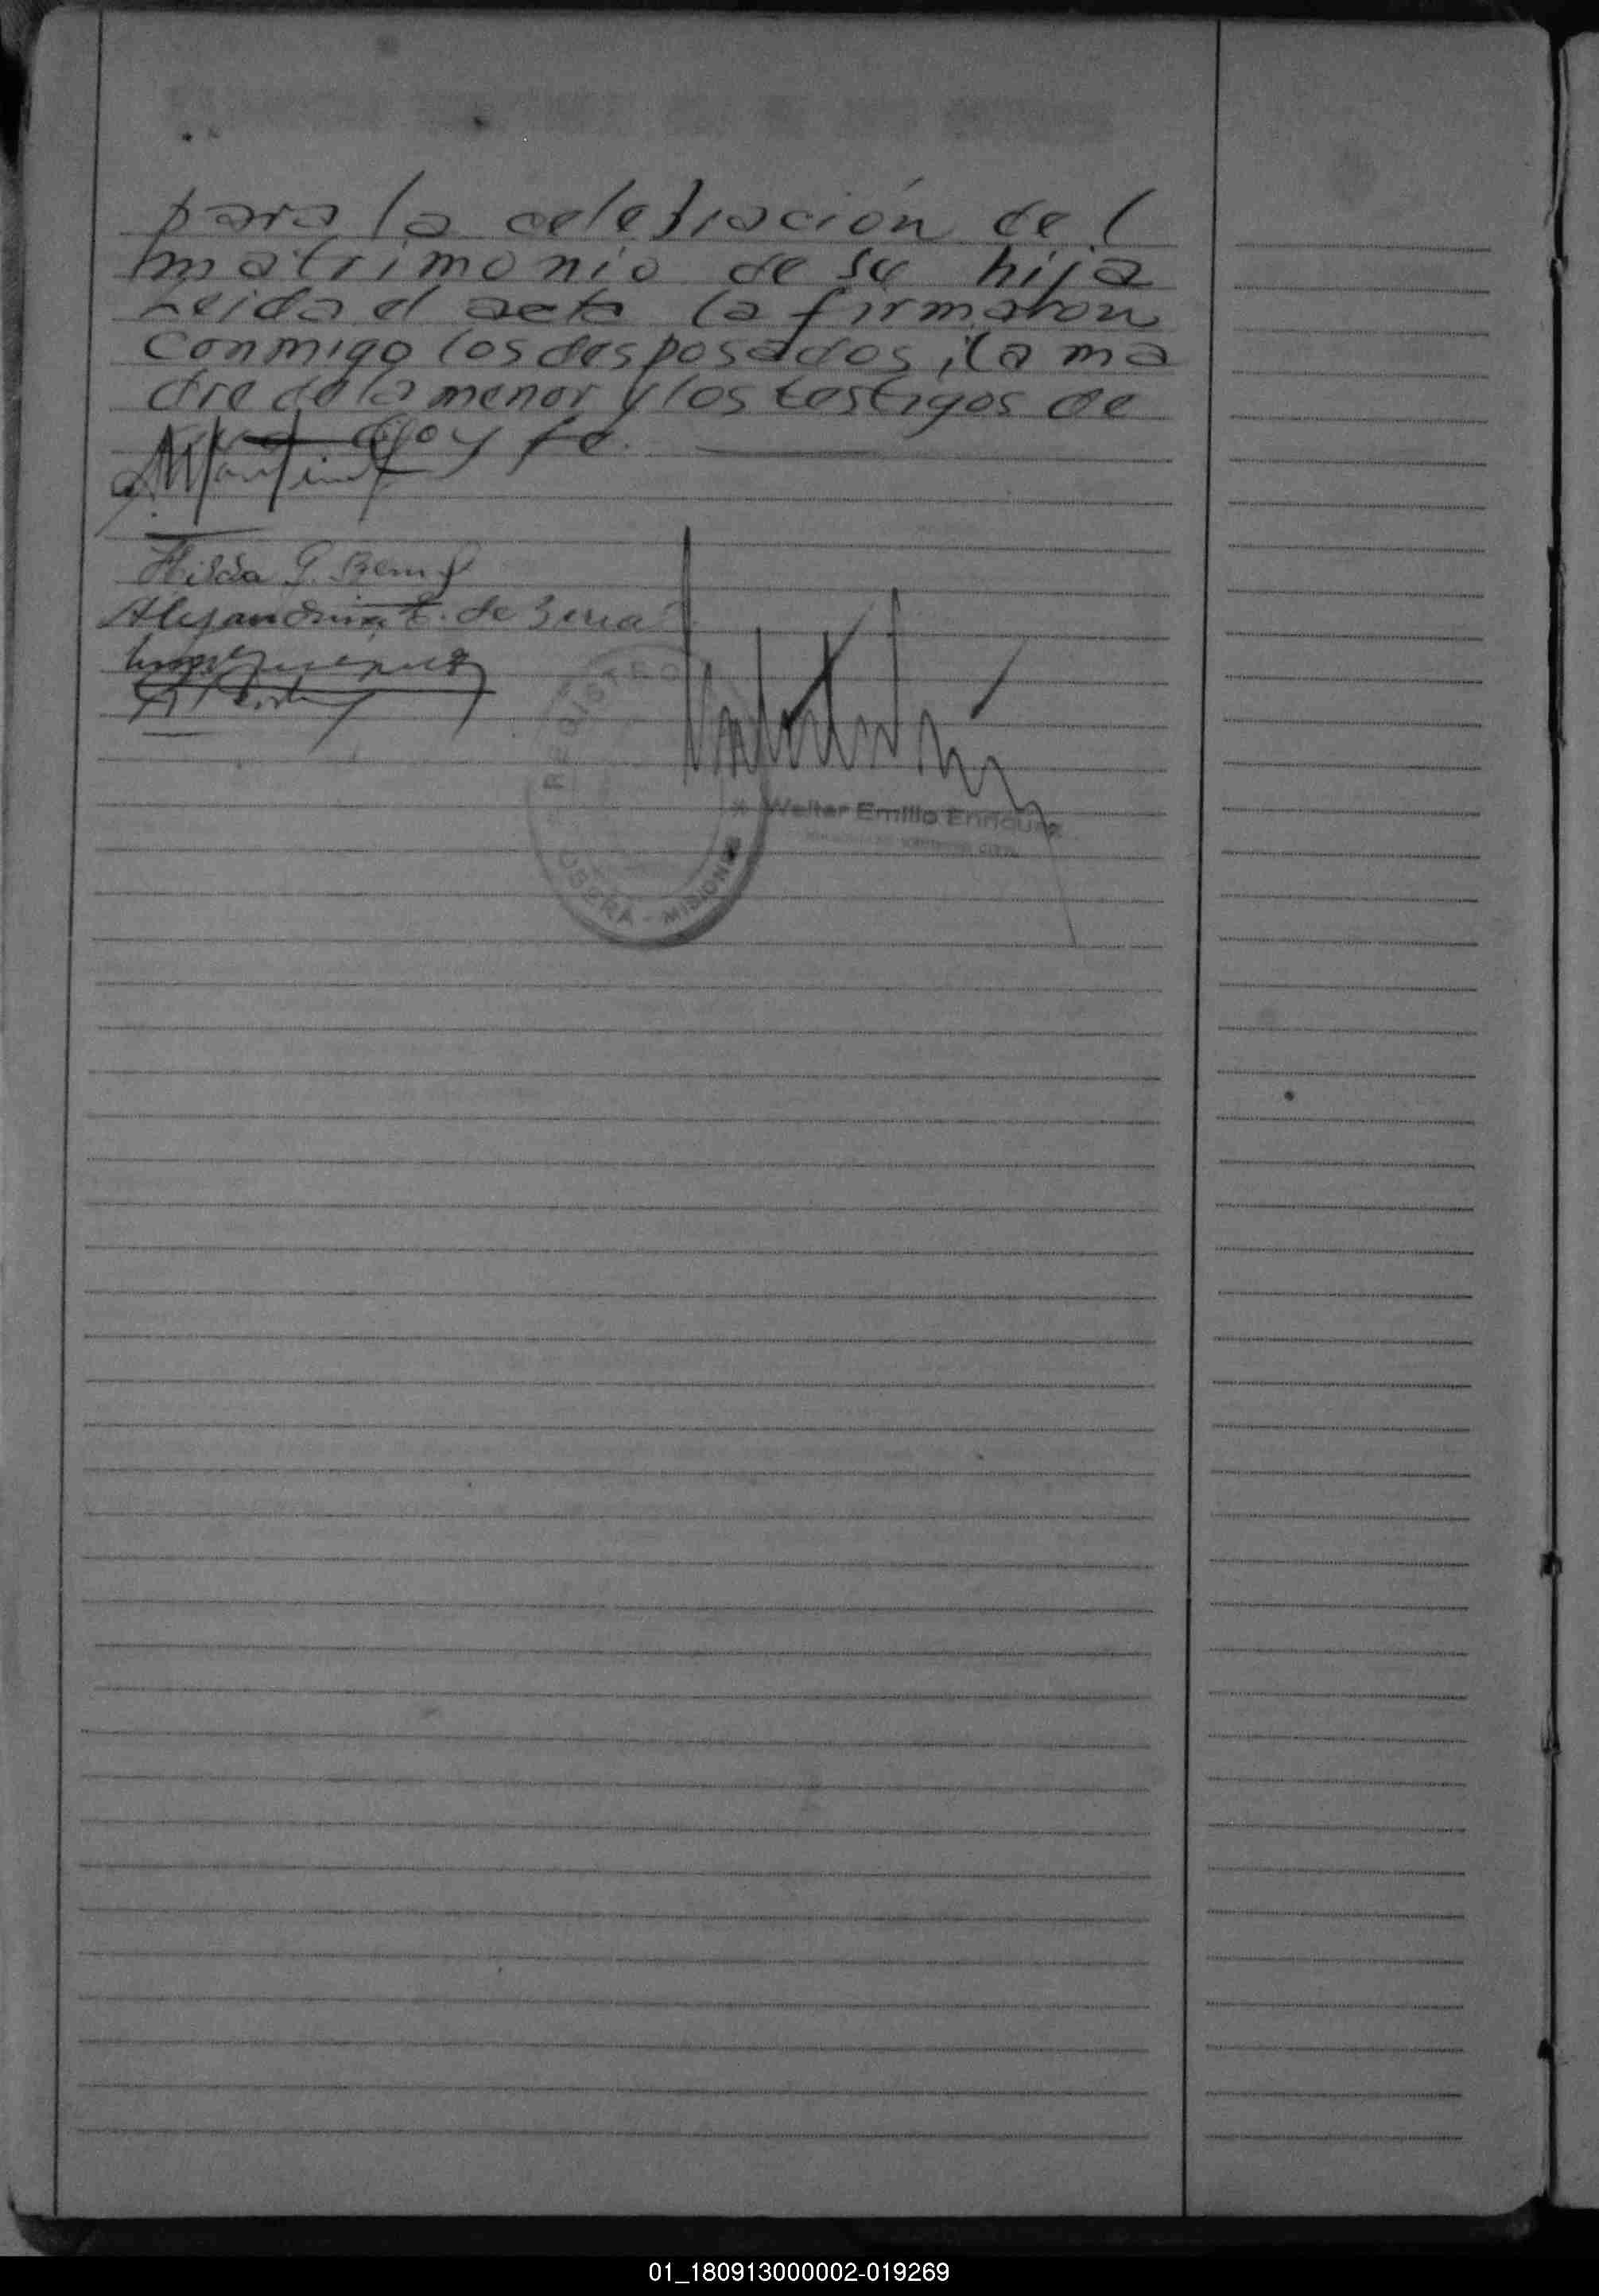 para la celebración del
matrimonio de su hija
Leida el acta la firmaron
conmigo los desposados, la ma
dre de la menor y los testigos de
que doy fe.
Hilda G.
Alejandrina E. de
REGISTRO
OBERA - MISIONES
Walter Emilio Enrique
01_180913000002-019269